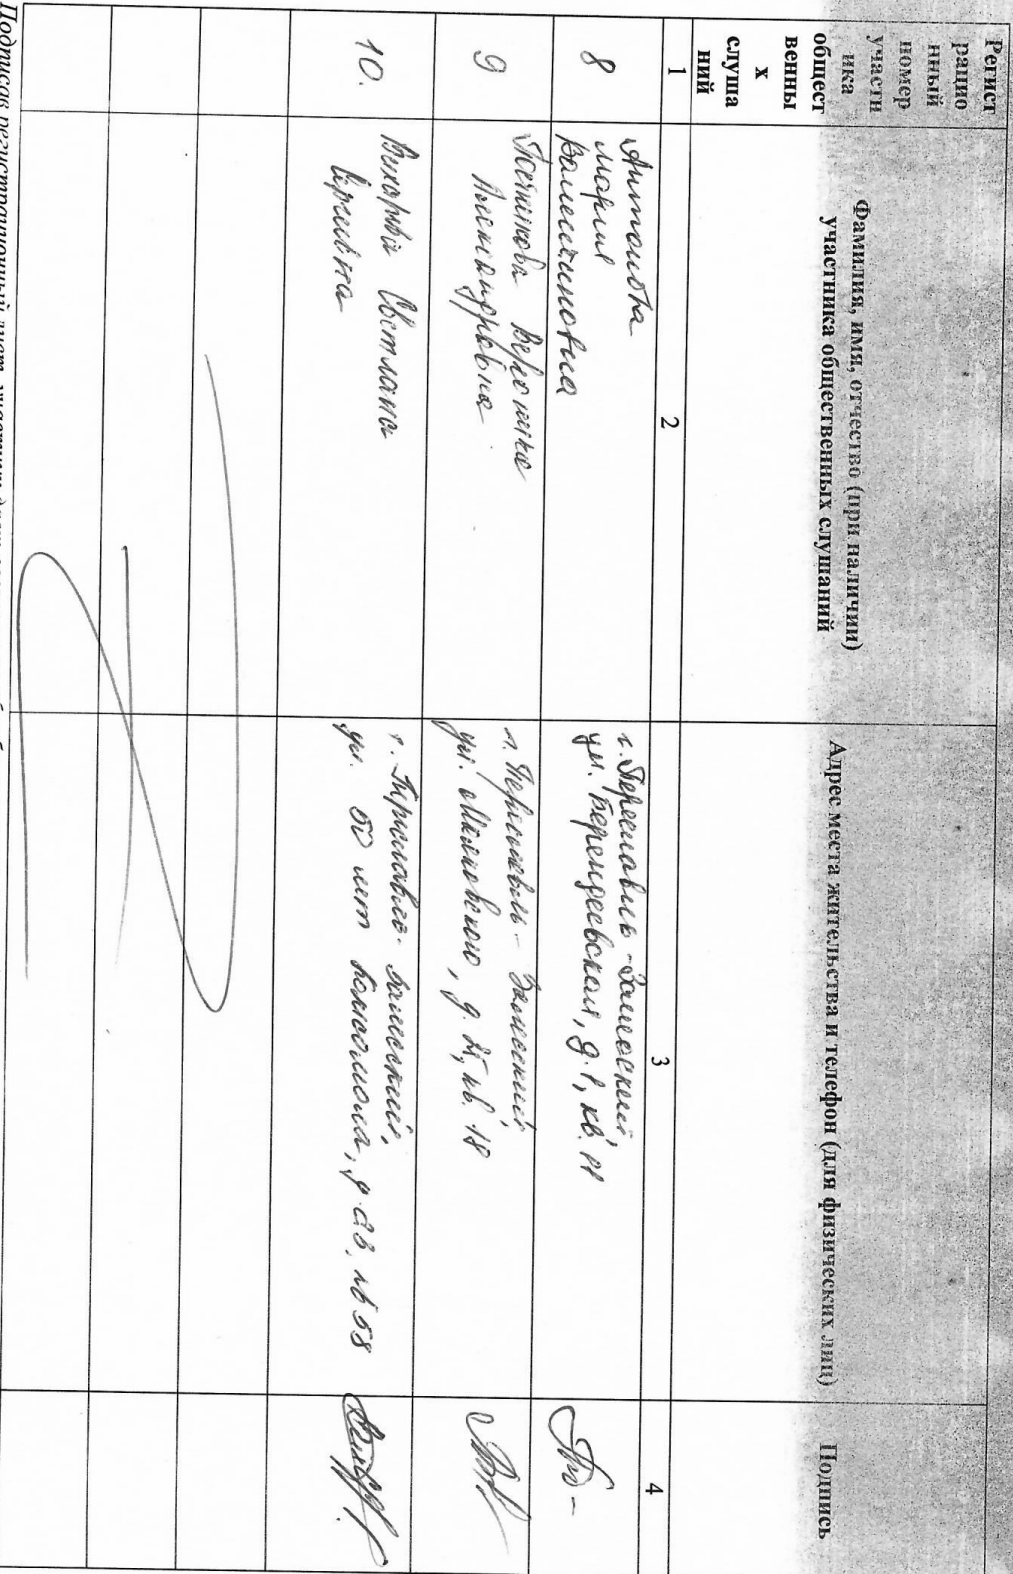 Регист
рацио
нный
номер
участн
ика
общест
венны
х
слуша
ний
Фамилия, имя, отчество (при наличии)
участника общественных слушаний
Адрес места жительства и телефон (для физических лиц)
Подпись
1
2
3
4
8
Антонова
Мария
Валентиновна
г. Переславль-Залесский,
ул. Берендеевская, д.
кв.
9
Вероника
Александровна
г. Переславль-Залесский,
ул. Маяковского, д.
кв. 18
10.
Светлана
Сергеевна
г. Переславль-Залесский,
ул. 50 лет Комсомола, д.
кв 58
Подписав регистрационный лист, участник